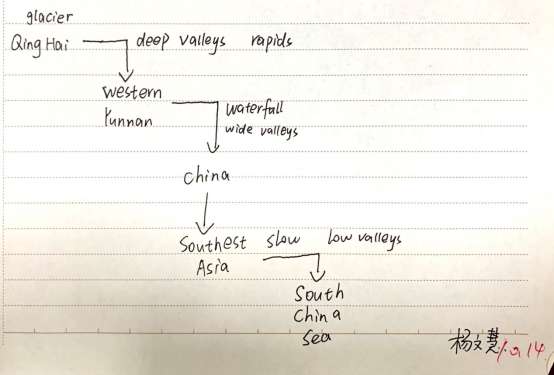 glacier
Qing Hai
deep valleys rapids
western
Yunnan
waterfall
wide valleys
china
Southest
Asia
slow low valleys
South
china
sea
杨文慧